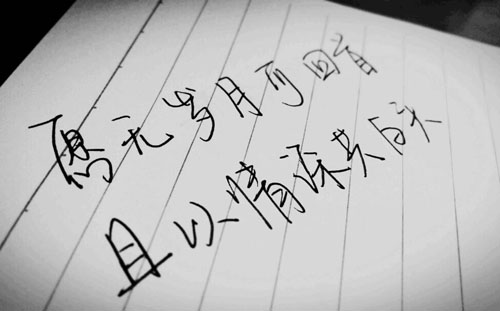 愿无岁月可回首
且以情深共白头